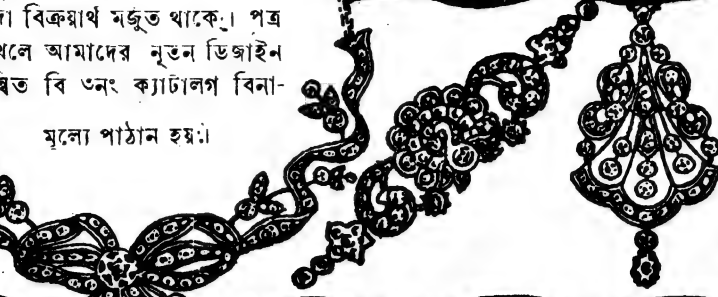 বিক্রয়ার্থ মজুত থাকে। পত্র
আমাদের নূতন ডিজাইন
বি ৩নং ক্যাটালগ বিনা-
মূল্যে পাঠান হয়।